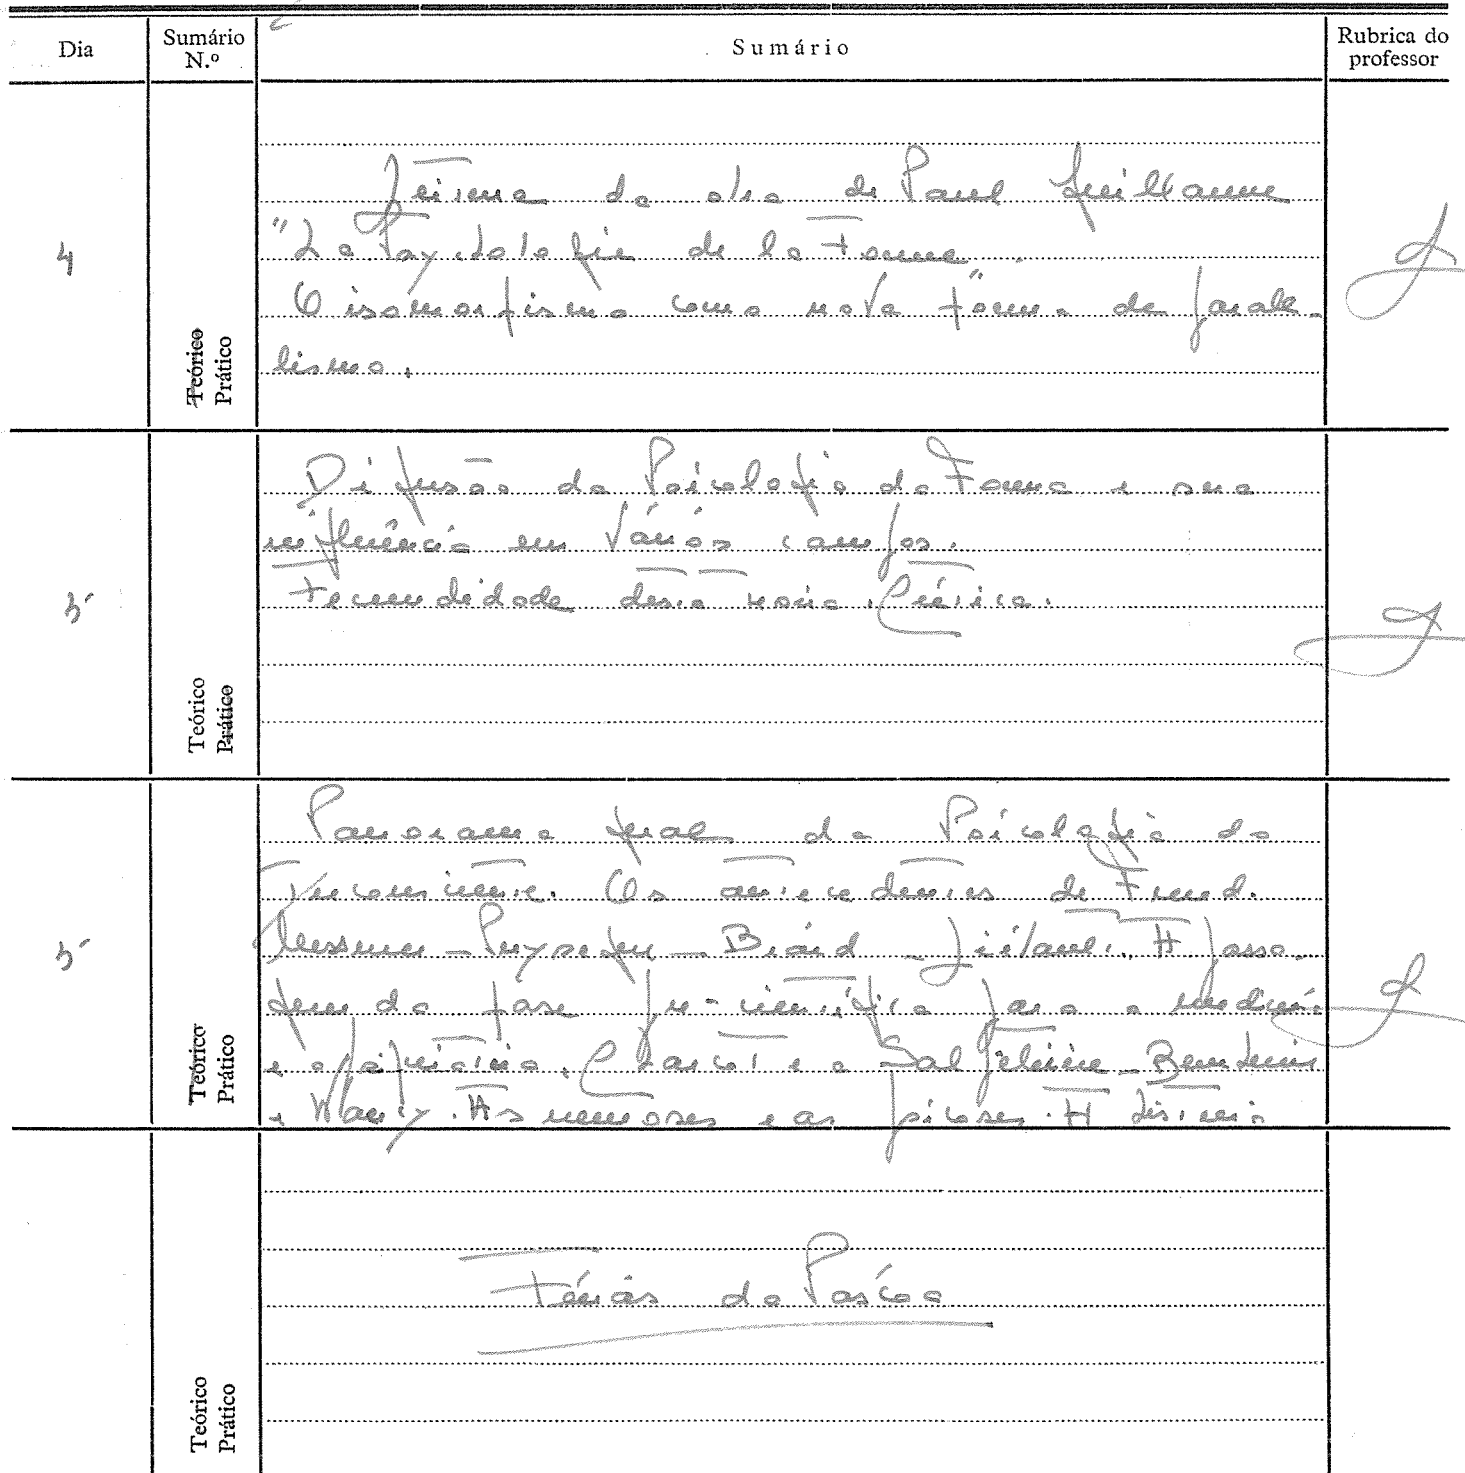 Dia
Sumário N.º
Sumário
Rubrica do professor
4
Teórico
Prático
Leitura da obra de Paul Guillaume
"La Psychologie de la Forme".
O isomorfismo como nova forma de parale-
lismo.
5
Teórico
Prático
Difusão da Psicologia da Forma e sua
influência em vários campos.
Fecundidade desta teoria. Crítica.
5
Teórico
Prático
Panorama geral da Psicologia do
Inconsciente. Os antecedentes de Freud.
Messmer - Puységur - Braid - Liébault. A passa-
gem da fase pré-científica para a medicina
e a psiquiatria. Charcot e a Salpêtrière - Bernheim
e Nancy. As neuroses e as psicoses. A
Teórico
Prático
Férias da Páscoa